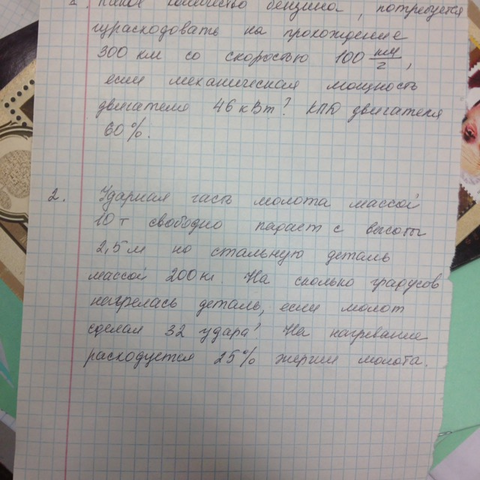 2. Какое количество бензина, потребуется
израсходовать на прохождение
300 км со скоростью 100 км/г,
если механическая мощность
двигателя 46 кВт? КПД двигателя
60%.
2. Ударная часть молота массой
10 т свободно падает с высоты
2,5 м на стальную деталь
массой 200 кг. На сколько градусов
нагрелась деталь, если молот
сделал 32 удара? На нагревание
расходуется 25% энергии молота.